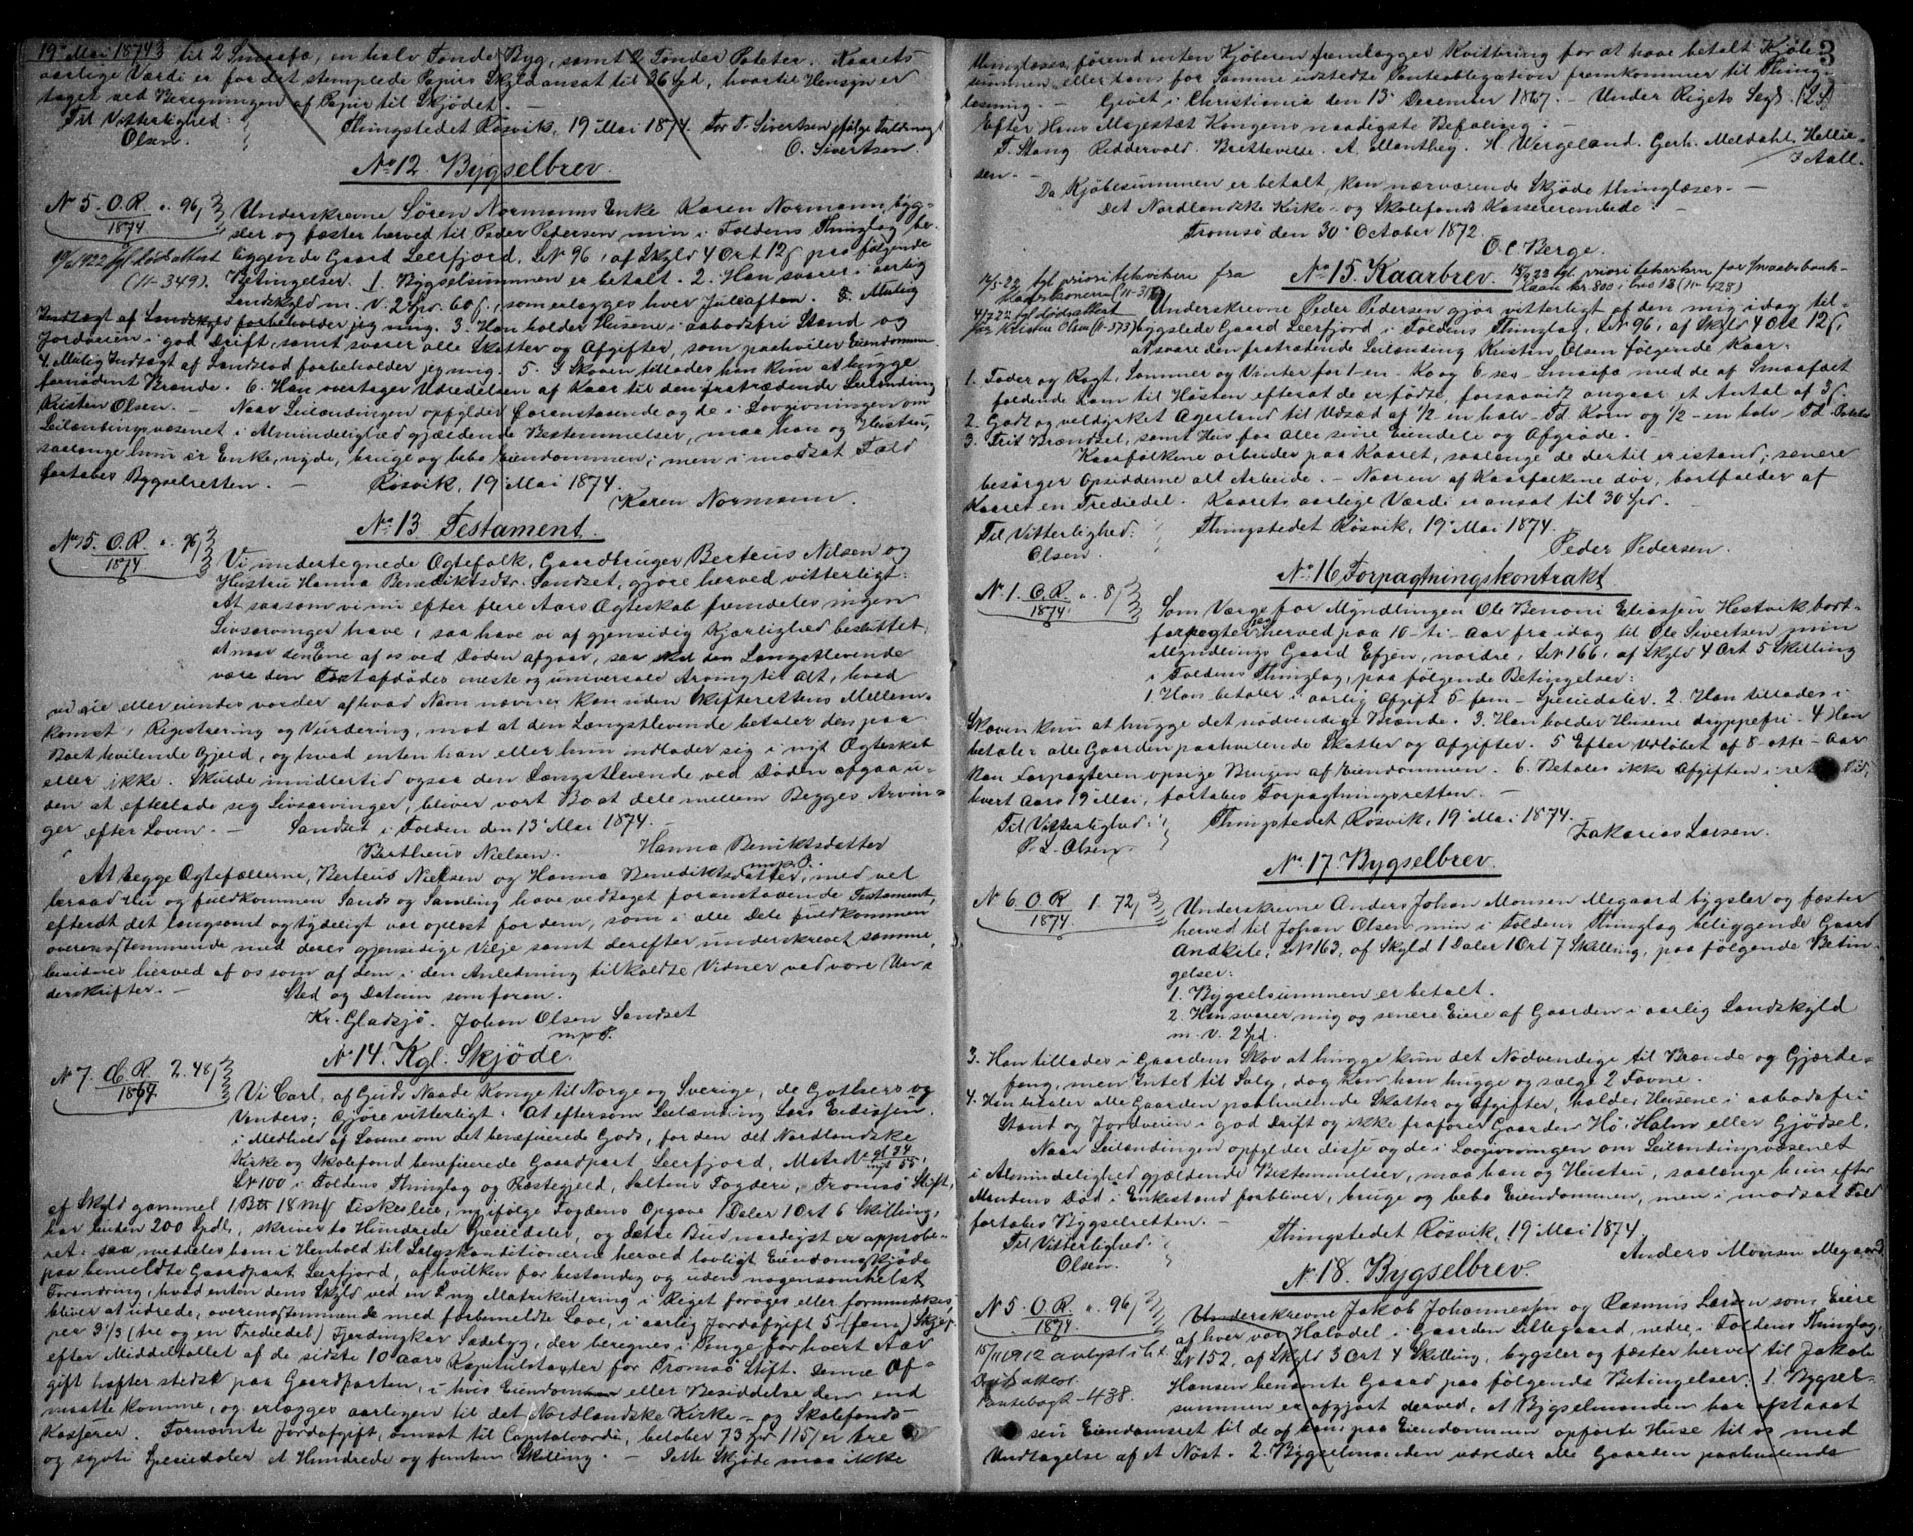 19 Mai 1874 til 2 Smaafæ, en halv Tønde Byg, samt 2 Tønder Poteter. Kaarets
aarlige Værdi er for det stemplede Papirs Skyld ansat til 36 Spd, hvortil Hensyn er
taget ved Beregningen af Papir til Skjødet. —
Til Vitterlighed: Thingstedet Røsvik, 19 Mai 1874. For T. Sivertsen ifølge Fuldmagt
Olsen. O. Sivertsen.
No 12. Bygselbrev.
N 5. O.R. 96
1874
Underskrevne Søren Normanns Enke Karen Normann, byg-
sler og fæster herved til Peder Pedersen min i Foldens Thinglag be-
liggende Gaard Leerfjord, LN 96, af Skyld 4 Ort 12 s paa følgende
(11-349). Betingelser. 1. Bygselsummen er betalt. 2. Han svarer i aarlig
Landskyld m. v. 2 Spd. 60 s., som erlægges hver Juleaften. 3. Mulig
Indtægt af Landskyld forbeholder jeg mig. 3. Han holder Husene i aabodsfri Stand og
Jordveien i god Drift, samt svarer alle Skatter og Afgifter, som paahviler Eiendommen.
4. Mulig Indtægt af Landstød forbeholder jeg mig. 5. I Skoven tillades han kun at hugge
fornødent Brænde. 6. Han overtager Udredelsen af Kaar til den fratrædende Leilænding
Kristen Olsen. — Naar Leilændingen opfylder foranstaaende og de i Lovgivningen om
Leilændingsvæsenet i Almindelighed gjældende Bestemmelser, maa han og Hustru,
saalænge hun er Enke, nyde, bruge og bebo Eiendommen; men i modsat Fald
fortabes Bygselretten. — Røsvik, 19 Mai 1874.
Karen Normann.
No 13 Testament.
No 5. O.R. 96
1874
Vi undertegnede Ægtefolk, Gaardbruger Berteus Nilsen og
Hustru Hanna Benediktsdtr. Sandset, gjøre herved vitterligt:
At saasom vi nu efter flere Aars Ægteskab fremdeles ingen
Livsarvinger have, saa have vi af gjensidig Kjærlighed besluttet,
at naar den Ene af os ved Døden afgaar, saa skal den Længstlevende
være den Førstafdødes eneste og universale Arving til Alt, hvad
vi eie eller eiendes vorder af hvad Navn nævnes kan uden Skifterettens Mellem-
komst, Registrering og Vurdering, mod at den Længstlevende betaler den paa
Boet hvilende Gjeld, og hvad enten han eller hun indlader sig i nyt Ægteskab
eller ikke. Skulde imidlertid ogsaa den Længstlevende ved Døden afgaa u-
den at efterlade sig Livsarvinger, bliver vort Bo at dele mellem Begges Arvin-
ger efter Loven. — Sandset i Folden den 13 Mai 1874.
Bertheus Nielsen. Hanna Beniktsdatter
m.p.P.
At begge Ægtefællerne, Berteus Nielsen og Hanna Benediktsdatter, med vel
beraad Hu og fuldkommen Sands og Samling have vedtaget foranstaaende Testament,
efterat det langsomt og tydeligt var oplæst for dem, som i alle Dele fuldkommen
overensstemmende med deres gjensidige Vilje samt derefter underskrevet samme,
bevidnes herved af os som af dem i den Anledning tilkaldte Vidner ved vore Un-
derskrifter. — Sted og Datum som foran.
Kr. Gladsjø. Johan Olsen Sandset
m.p.P.
N 14. Kgl. Skjøde.
N 7. O.R. 2. 48
1867
Vi Carl, af Guds Naade Konge til Norge og Sverige, de Gothers og
Venders; Gjøre vitterligt: At eftersom Leilænding Lars Eidissen
i Medhold af Lovene om det beneficerede Gods, for den det Nordlandske
Kirke og Skolefond beneficerede Gaardpart Leerfjord, Matr N gl 74 ny 55,
LN 100 i Foldens Thinglag og Præstegjeld, Saltens Fogderi, Tromsø Stift,
af Skyld gammel 1 Bøl 18 Mk Fiskesleie, ny ifølge Fogdens Opgave 1 Daler 1 Ort 6 Skilling,
har budet 200 Spdl., skriver to Hundrede Speciedaler, og dette Bud naadigst er approbe-
ret: saa meddeles ham i Henhold til Salgskonditionerne herved lovligt Eiendomsskjøde
paa bemeldte Gaardpart Leerfjord, af hvilken for bestandig og uden nogensomhelst
Forandring, hvad enten dens Skyld ved en ny Matrikulering i Riget forøges eller formindskes,
bliver at udrede, overensstemmende med forbemeldte Love, i aarlig Jordafgift 5 (fem) Skjep-
per 3 1/3 (tre og en Trediedel) Fjerdingkar Sædebyg, der beregnes i Penge for hvert Aar
efter Middeltallet af de sidste 10 aars Kapitulstaxter for Tromsø Stift. Denne Af-
gift hæfter stedse paa Gaardparten, i hvis Eiendom eller Besiddelse den end
maatte komme, og erlægges aarligen til det Nordlandske Kirke- og Skolefonds
Kasserer. Fornævnte Jordafgift, ansat til Capitalværdi, beløber 73 Spd 115 s er tre
og syvti Speciedaler et Hundrede og femten Skilling. — Dette Skjøde maa ikke
3
thinglæses, førend enten Kjøberen fremlægger Kvittering for at have betalt Kjøbe-
summen eller en for samme udstedte Pantobligation fremkommer til Thing-
læsning. — Givet i Christiania den 13 December 1867. — Under Rigets Segl. (L.S.)
Efter Hans Majestæt Kongens naadigste Befaling:
F. Stang. Riddervold. Bretteville. A. Manthey. H. Wergeland. Gerh. Meldahl. Hellie-
sen. — J. Aall.
Da Kjøbesummen er betalt, kan nærværende Skjøde thinglæses. —
Det Nordlandske Kirke- og Skolefonds Kassererembede.
Tromsø den 30 October 1872.
O. C. Berge.
No 15. Kaarbrev.
14/5-22 tgl prioritetsvikelse fra Kaarkonen (11-348)
4/7 22 tgl dødsattest for Kristen Olsen (11-373)
15/9 22 tgl. prioritetsvikelse for Smaabrukk-
laan kr. 800 i bno 13 (11-428)
Underskrevne Peder Pedersen gjør vitterligt af den mig idag til-
bygslede Gaard Leerfjord i Foldens Thinglag, LN 96, af Skyld 4 Ort 12 s,
at svare den fratrædende Leilænding Kristen Olsen følgende Kaar:
1. Foder og Røgt, Sommer og Vinter for 1-en-Ko og 6-sex-Smaafæ med de af Smaafæet
faldende Lam til Høsten efterat de er fødte, forsaavidt angaar et Antal af 3.
2. Godt og veldyrket Agerland til Udsæd af 1/2 en halv Td. Korn og 1/2-en halv-Td. Poteter
3. Frit Brændsel, samt Hus for alle sine Eiendele og Afgrøde. —
Kaarfolkene arbeider paa Kaaret, saalænge de dertil er istand; senere
besørger Opsidderne alt Arbeide. — Naar en af Kaarfolkene dør, bortfalder af
Kaaret en Trediedel. Kaarets aarlige Værdi er ansat til 30 Spd.
Til Vitterlighed: Thingstedet Røsvik, 19 Mai 1874.
Olsen. Peder Pedersen.
No 16 Forpagtningskontrakt
N 1. O.R. 8
1874.
Som Værge for Myndlingen Ole Benoni Eliassen Hestvik bort-
forpagter jeg herved paa 10-ti-Aar fra idag til Ole Sivertsen min
Myndlings Gaard Efjen, nordre, LN 166, af Skyld 4 Ort 5 Skilling
i Foldens Thinglag, paa følgende Betingelser:
1. Han betaler i aarlig Afgift 5-fem-Speciedaler. 2. Han tillades i
Skoven kun at hugge det nødvendige Brænde. 3. Han holder Husene dryppefri. 4 Han
betaler alle Gaarden paahvilende Skatter og Afgifter. 5 Efter Udløbet af 8-otte-Aar
kan Forpagteren opsige Brugen af Eiendommen. 6. Betales ikke Afgiften i rette Tid,
hvert Aars 19 Mai, fortabes Forpagtningsretten. —
Til Vitterlighed: Thingstedet Røsvik, 19 Mai 1874.
P. L. Olsen. Zakarias Larsen.
No 17. Bygselbrev.
N 6 O.R. 1. 72
1874.
Underskrevne Anders Johan Monsen Megaard bygsler og fæster
herved til Johan Olsen min i Foldens Thinglag beliggende Gaard
Andkile, LN 163, af Skyld 1 Daler 1 Ort 7 Skilling, paa følgende Betin-
gelser:
1. Bygselsummen er betalt.
2. Han svarer mig og senere Eiere af Gaarden i aarlig Landskyld
m. v. 2 Spd.
3. Han tillades i Gaardens Skov at hugge kun det Nødvendige til Brænde og Gjærde-
fang, men Intet til Salg, dog kan han hugge og sælge 2 Favne.
4. Han betaler alle Gaarden paahvilende Skatter og Afgifter, holder Husene i aabodsfri
Stand og Jordveien i god Drift og ikke fraføre Gaarden Hø, Halm eller Gjødsel.
Naar Leilændingen opfylder disse og de i Lovgivningen om Leilændingsvæsenet
i Almindelighed gjældende Bestemmelser, maa han og Hustru, saalænge hun efter
Mandens Død i Enkestand forbliver, bruge og bebo Eiendommen, men i modsat Fald
fortabes Bygselretten. —
Til Vitterlighed. Thingstedet Røsvik, 19 Mai 1874.
Olsen. Anders Monsen Megaard
N 18. Bygselbrev.
N 5 O.R. 96
1874.
15/11 1912 avlyst
Pantebog 2-438.
Underskrevne Jakob Johannessen og Rasmus Larsen som Eiere
af hver vor Halvdel i Gaarden Lillegaard, nedre, i Foldens Thinglag,
LN 152, af Skyld 3 Ort 4 Skilling, bygsler og fæster herved til Jakob
Hansen benævnte Gaard paa følgende Betingelser: 1. Bygsel-
summen er afgjort derved, at Bygselmanden har afstaaet
sin Eiendomsret til de af ham paa Eiendommen opførte Huse til os med
Undtagelse af et Nøst. 2. Bygselmanden udreder alle Gaarden paahvilende